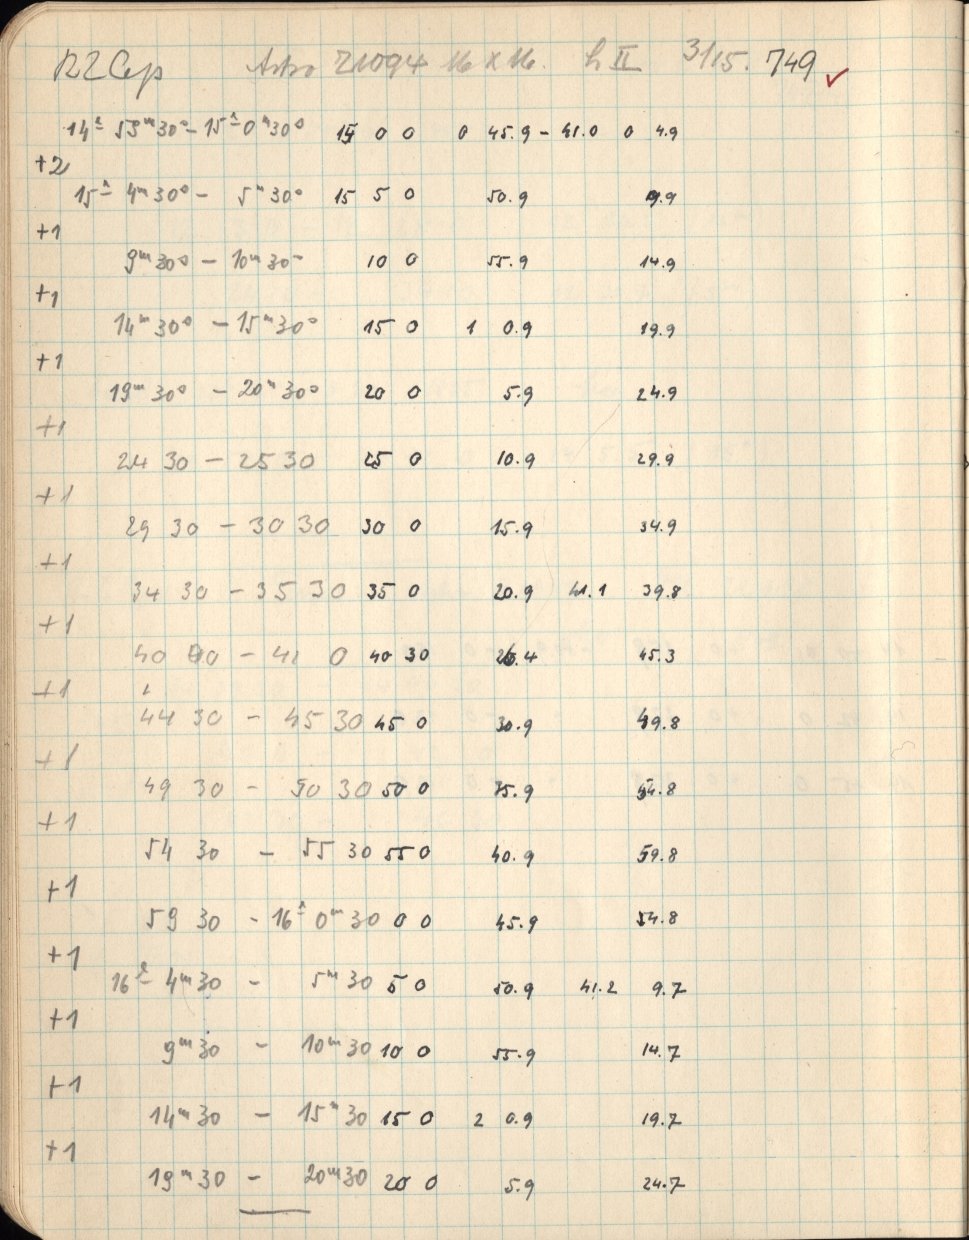 RZ Cep Astro Z1094 16 x 16. h II 3/15. 749 ✓
14ʰ 59ᵐ30ˢ – 15ʰ 0ᵐ30ˢ 15 0 0 0 45.9 – 41.0 0 4.9
+2
15ʰ 4ᵐ30ˢ – 5ᵐ30ˢ 15 5 0 50.9 9.9
+1
9ᵐ30ˢ – 10ᵐ30ˢ 10 0 55.9 14.9
+1
14ᵐ30ˢ – 15ᵐ30ˢ 15 0 1 0.9 19.9
+1
19ᵐ30ˢ – 20ᵐ30ˢ 20 0 5.9 24.9
+1
24 30 – 25 30 25 0 10.9 29.9
+1
29 30 – 30 30 30 0 15.9 34.9
+1
34 30 – 35 30 35 0 20.9 41.1 39.8
+1
40 00 – 41 0 40 30 26.4 45.3
+1
44 30 – 45 30 45 0 30.9 49.8
+1
49 30 – 50 30 50 0 35.9 54.8
+1
54 30 – 55 30 55 0 40.9 59.8
+1
59 30 – 16ʰ 0ᵐ30 0 0 45.9 54.8
+1
16ʰ 4ᵐ30 – 5ᵐ30 5 0 50.9 41.2 9.7
+1
9ᵐ30 – 10ᵐ30 10 0 55.9 14.7
+1
14ᵐ30 – 15ᵐ30 15 0 2 0.9 19.7
+1
19ᵐ30 – 20ᵐ30 20 0 5.9 24.7